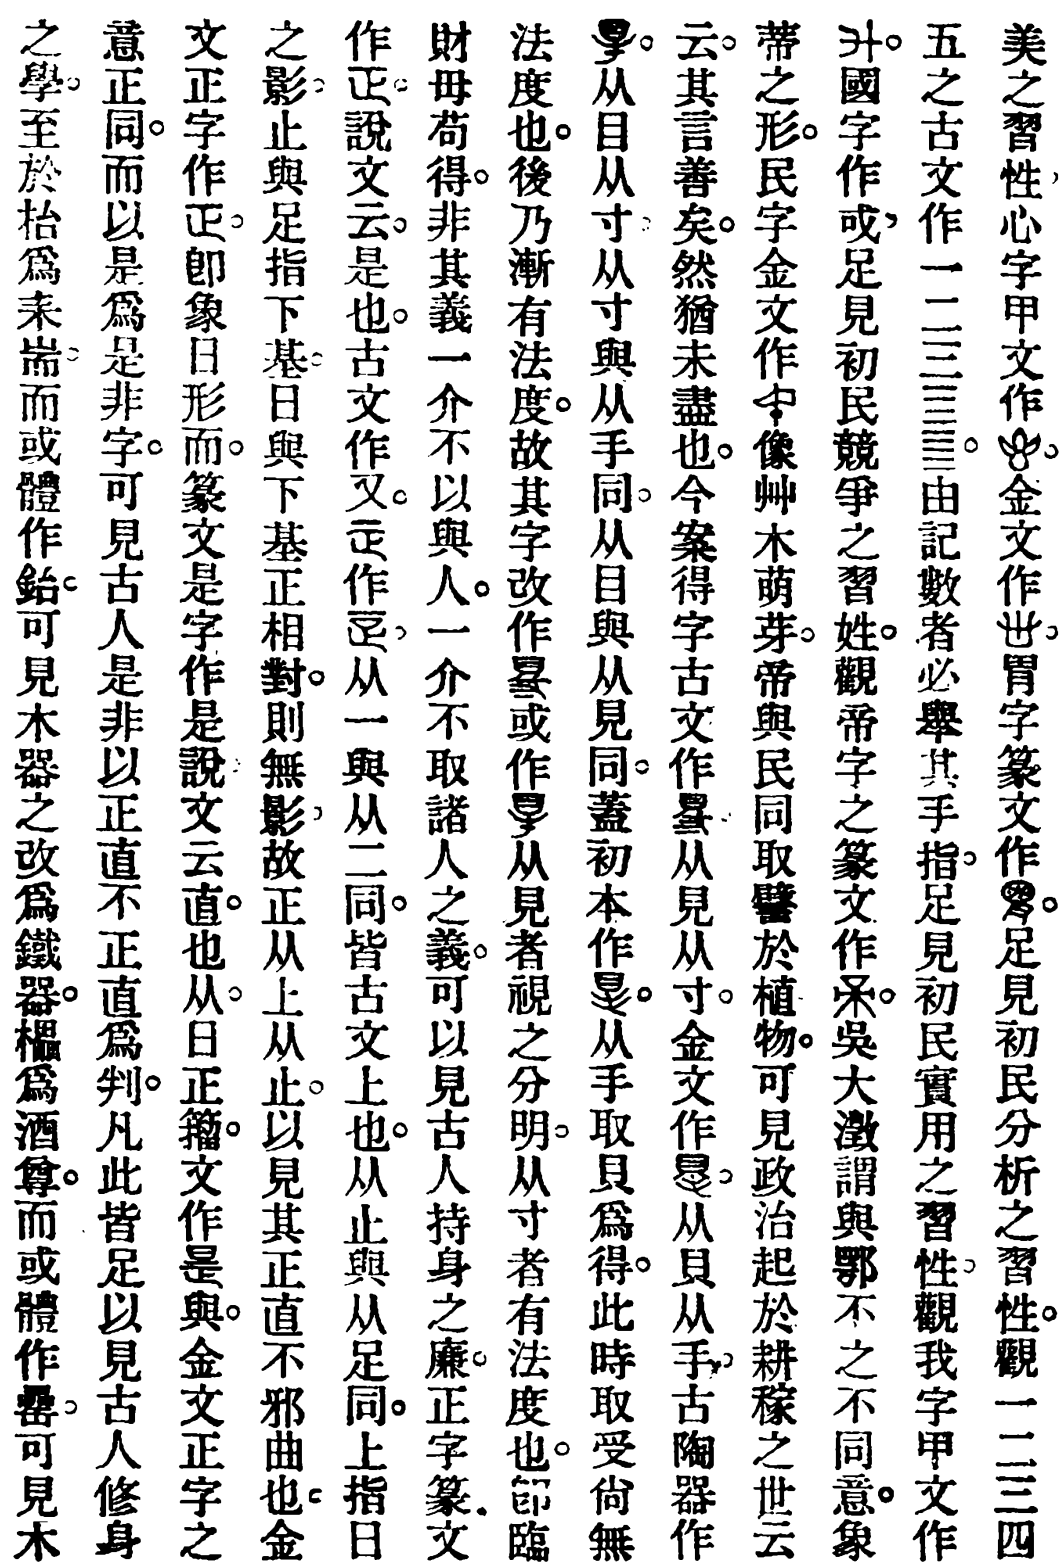 美之習性,心字甲文作。金文作。胃字篆文作。足見初民分析之習性。觀一二三四
五之古文作一二三亖。由記數者必舉其手指。足見初民實用之習性。觀我字甲文作
。國字作或,足見初民競爭之習姓。觀帝字之篆文作。吳大澂謂與鄂不之不同意。象
蒂之形。民字金文作像艸木萌芽。帝與民同取譬於植物。可見政治起於耕稼之世云
云。其言善矣。然猶未盡也。今案得字古文作从見从寸。金文作。从貝从手。古陶器作
。从目从寸。从寸與从手同。从目與从見同。蓋初本作。从手取貝爲得。此時取受尙無
法度也。後乃漸有法度。故其字改作或作从見者視之分明。从寸者有法度也。卽臨
財毋苟得。非其義一介不以與人。一介不取諸人之義。可以見古人持身之廉。正字篆文
作。說文云。是也。古文作又。作。从一與从二同。皆古文上也。从止與从足同。上指日
之影。止與足指下基。日與下基正相對。則無影。故正从上从止。以見其正直不邪曲也。金
文正字作。卽象日形而。篆文是字作是說文云直。也从。日正籀。文作與。金文正字之
意正同。而以是爲是非字。可見古人是非以正直不正直爲判。凡此皆足以見古人修身
之學。至於枱爲耒耑。而或體作鈶。可見木器之改爲鐵器。櫑爲酒尊。而或體作罍。可見木